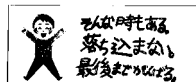 そんな時もある
落ち込まない
最後までがんばる。